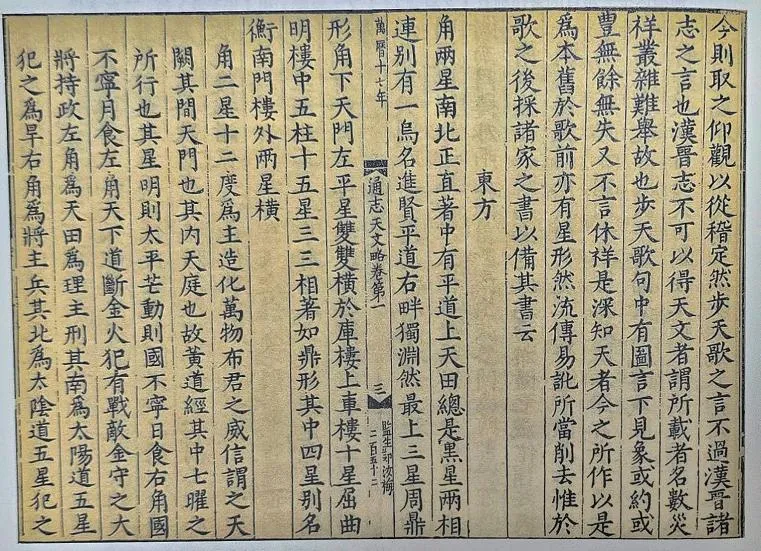 今則取之仰觀以從稽定然步天歌之言不過漢晉諸
志之言也漢晉志不可以得天文者謂所載者名數災
祥叢雜難舉故也步天歌句中有圖言下見象或約或
豐無餘無失又不言休祥是深知天者今之所作以是
爲本舊於歌前亦有星形然流傳易訛所當削去惟於
歌之後採諸家之書以備其書云
東方
角兩星南北正直著中有平道上天田總是黑星兩相
連別有一烏名進賢平道右畔獨淵然最上三星周鼎
萬曆十七年
通志天文略卷第一
三
監生郭汝梅
二百五十二
形角下天門左平星雙雙橫於庫樓上車樓十星屈曲
明樓中五柱十五星三三相著如鼎形其中四星別名
衡南門樓外兩星橫
角二星十二度爲主造化萬物布君之威信謂之天
闕其間天門也其内天庭也故黃道經其中七曜之
所行也其星明則太平芒動則國不寧日食右角國
不寧月食左角天下道斷金火犯有戰敵金守之大
將持政左角爲天田爲理主刑其南爲太陽道五星
犯之爲旱右角爲將主兵其北爲太陰道五星犯之